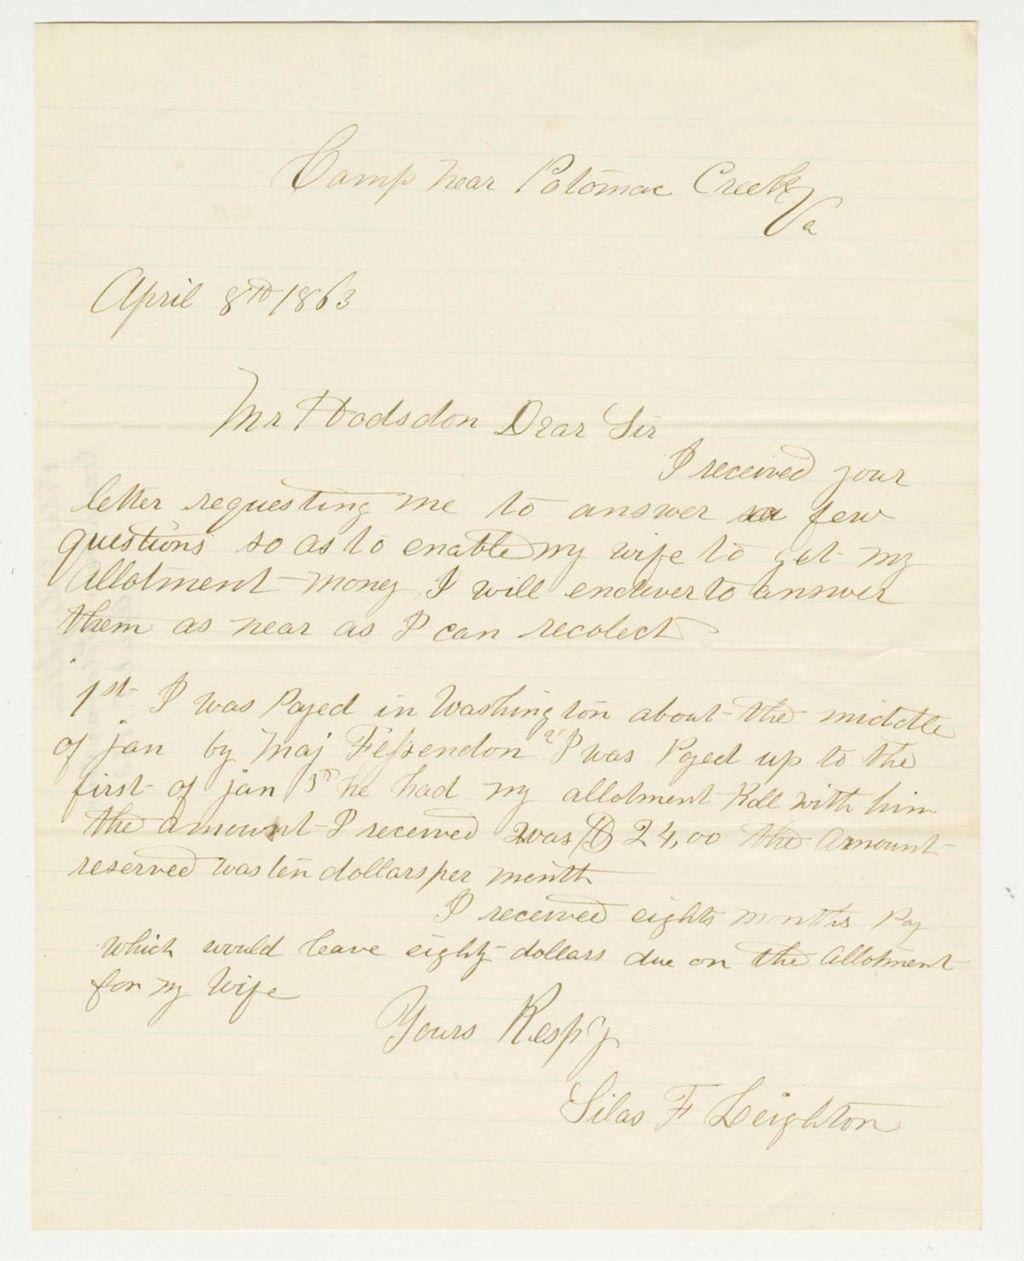 Camp near Potomac Creek
Va
April 8th 1863
Mr Hodsdon Dear Sir
I received your
letter requesting me to answer a few
questions so as to enable my wife to get my
Allotment money I will endever to answer
them as near as I can recolect
1st I was Payed in Washington about the middle
of jan by Maj Fessendon 2d I was Payed up to the
first of jan 3d he had my allotment Roll with him
the amount I received was $24,00 the amount
reserved was ten dollars per month
I received eights months Pay
which would leave eighty dollars due on the allotment
for my wife
Yours Respy
Silas F Leighton